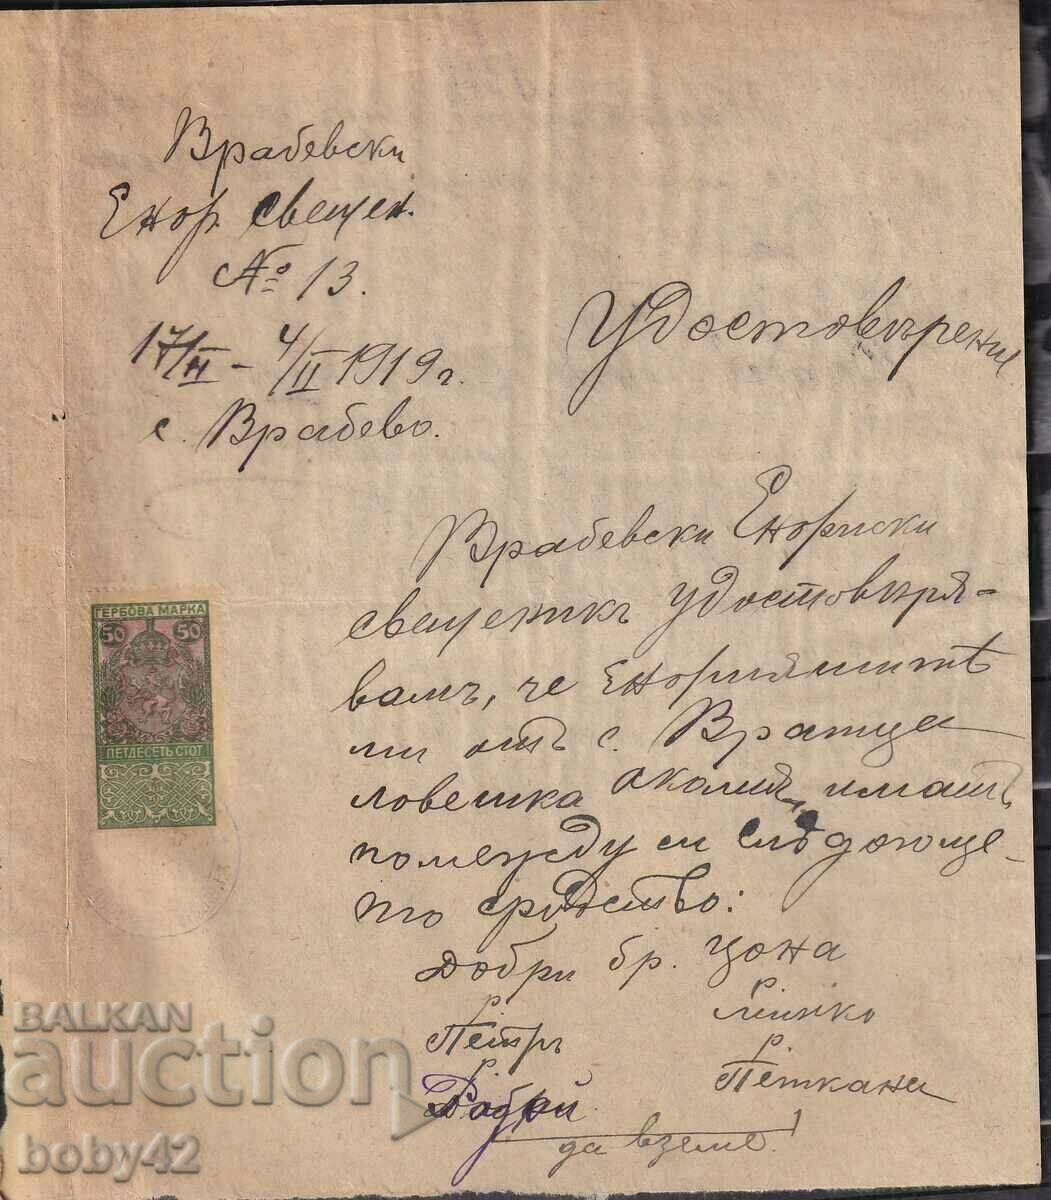 Врабевски
Енор. Свещен.
№ 13.
17/II - 4/II 1919 г.
с. Врабево.
Удостовърение
Врабевски Енориски
свещеникъ удостовъря-
вамъ, че Енориашитѣ
ми отъ с. Вратца
ловешка околия, иматъ
помежду си слѣдующе-
то сродство:
Добри бр. Цона
р р
Петръ Минко
р р
Добри Петкана
да вземе!
ГЕРБОВА МАРКА
50 50
ПЕТДЕСЕТЬ СТОТ
BALKAN
auction
boby42